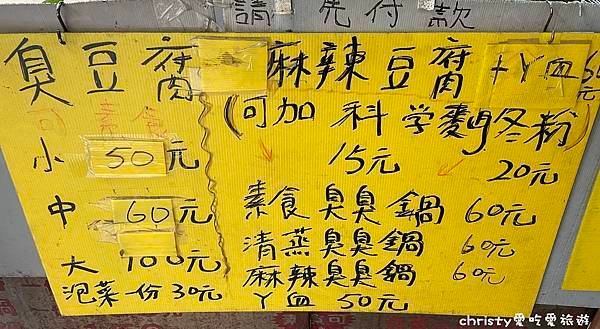 請先付款
臭豆腐
可素食
小 50元
中 60元
大 100元
泡菜一份30元
麻辣豆腐+丫血
60元
(可加科学麵 冬粉)
15元 20元
素食臭臭鍋 60元
清蒸臭臭鍋 60元
麻辣臭臭鍋 60元
丫血 50元
christy愛吃愛旅遊